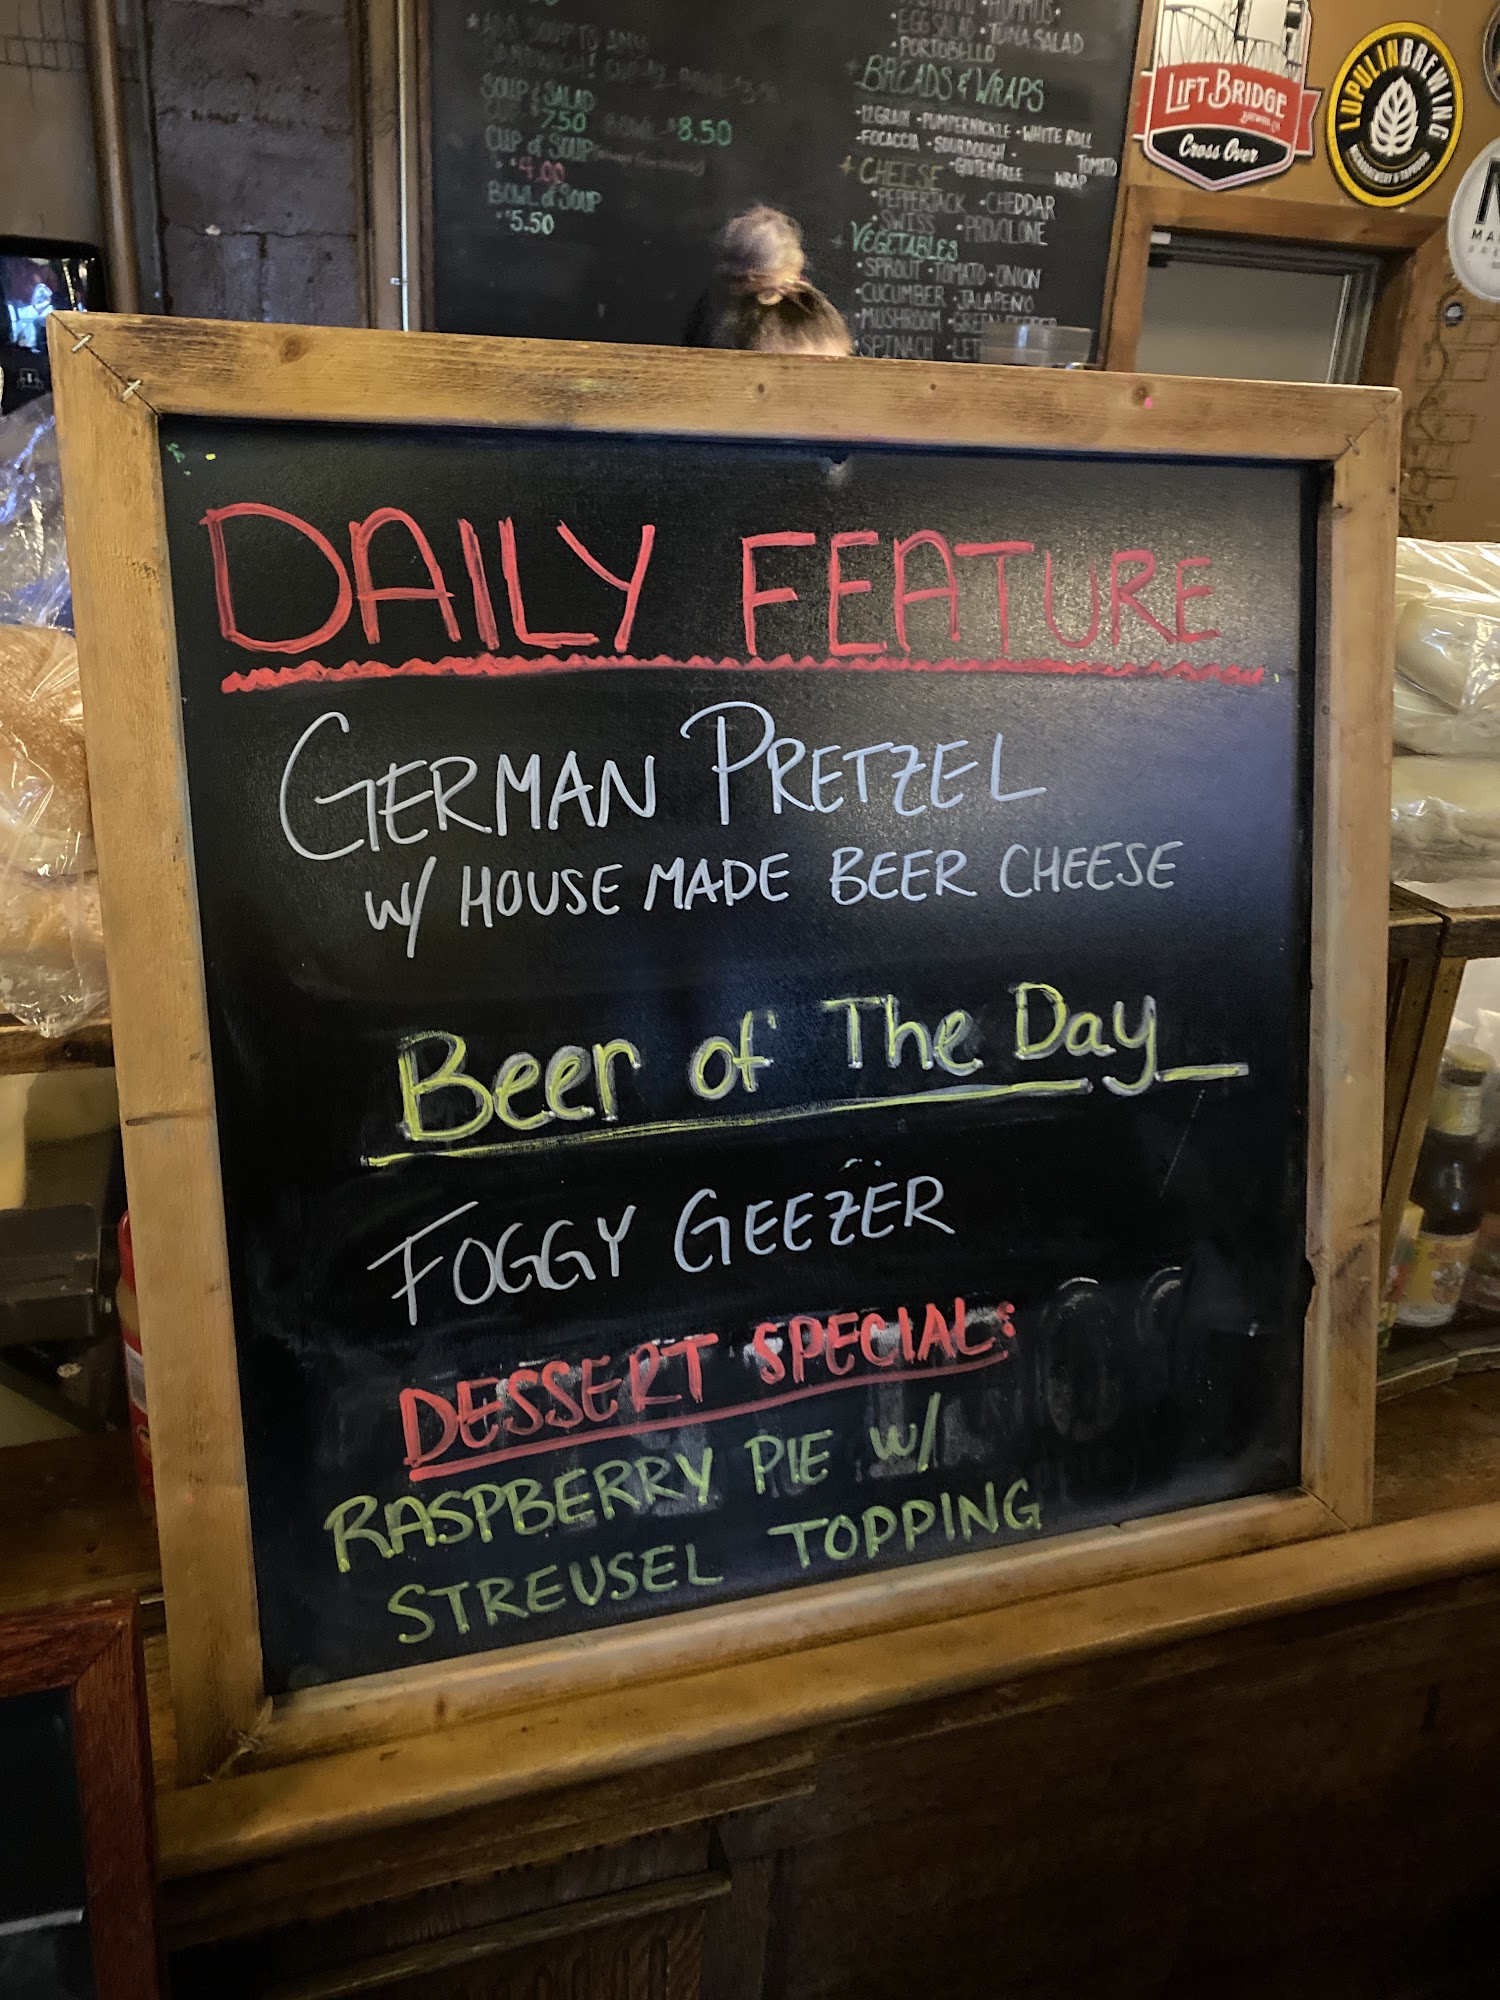 ADD SOUP TO ANY
SOUP & SALAD
7.50
$8.50
CUP of SOUP
4.00
BOWL of SOUP
5.50
HUMMUS
• EGG SALAD • TUNA SALAD
• PORTOBELLO
+ BREADS & WRAPS
• 12 GRAIN • PUMPERNICKLE • WHITE ROLL
• FOCACCIA • SOURDOUGH •
• GLUTEN FREE
TOMATO
WRAP
+ CHEESE
• PEPPERJACK • CHEDDAR
• SWISS • PROVOLONE
+ VEGETABLES
• SPROUT • TOMATO • ONION
• CUCUMBER • JALAPEÑO
• MUSHROOM • GREEN PEPPER
• SPINACH • LET
LIFT BRIDGE
BREWING CO.
Cross Over
LUPULIN BREWING
MICROBREWERY & TAPROOM
DAILY FEATURE
GERMAN PRETZEL
W/ HOUSE MADE BEER CHEESE
Beer of The Day
FOGGY GEEZER
DESSERT SPECIAL:
RASPBERRY PIE W/
STREUSEL TOPPING